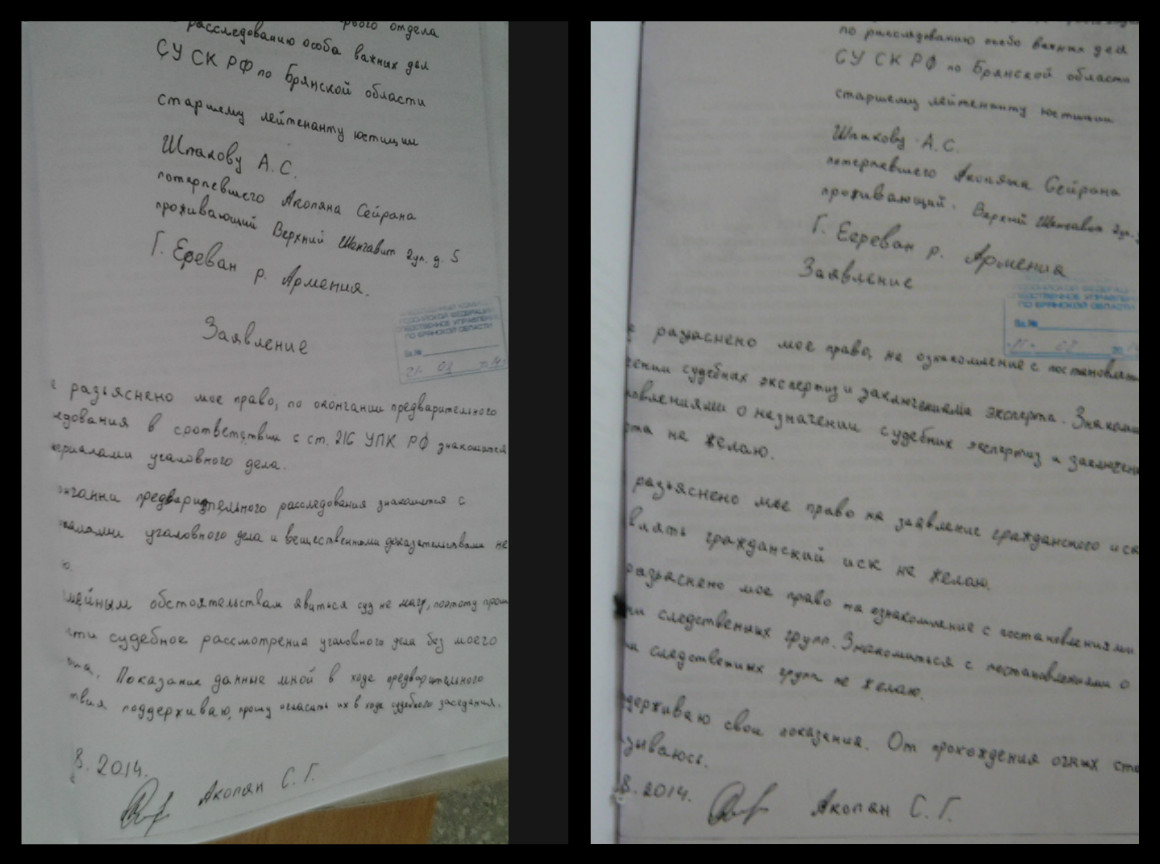 отдела
расследованию особа важных дел
СУ СК РФ по Брянской области
старшему лейтенанту юстиции
Шпакову А.С.
потерпевшего Акопяна Сейрана
проживающий Верхний Шенгавит 2ул. д. 5
Г. Ереван р. Армения.
Заявление
ПО БРЯНСКОЙ ОБЛАСТИ
Вх.№
разъяснено мое право, по окончании предварительного
в соответствии с ст. 216 УПК РФ знакомится
уголовного дела.
предварительного расследования знакомится с
уголовного дела и вещественными доказательствами не
обстоятельствам явиться суд не могу, поэтому
судебное рассмотрение уголовного дела без моего
Показание данные мной в ходе предварительного
поддерживаю, прошу огласить их в ходе судебного заседания.
8.2014.
Акопян С.Г.
по расследованию особо важных дел
СУ СК РФ по Брянской области
старшему лейтенанту юстиции
Шпакову А.С.
потерпевшего Акопяна Сейрана
проживающий. Верхний Шенгавит 2ул.
Г. Ереван р. Армения
Заявление
ПО БРЯНСКОЙ ОБЛАСТИ
Вх.№
мое право, на ознакомление с
судебных экспертиз и заключениями эксперта.
о назначении судебных экспертиз и
не желаю.
разъяснено мое право на заявление гражданского иска
гражданский иск не желаю.
разъяснено мое право на ознакомление с постановлениями
следственных групп. Знакомиться с постановлениями о
следственных групп не желаю.
свои показания. От прохождения очных
8.2014.
Акопян С.Г.